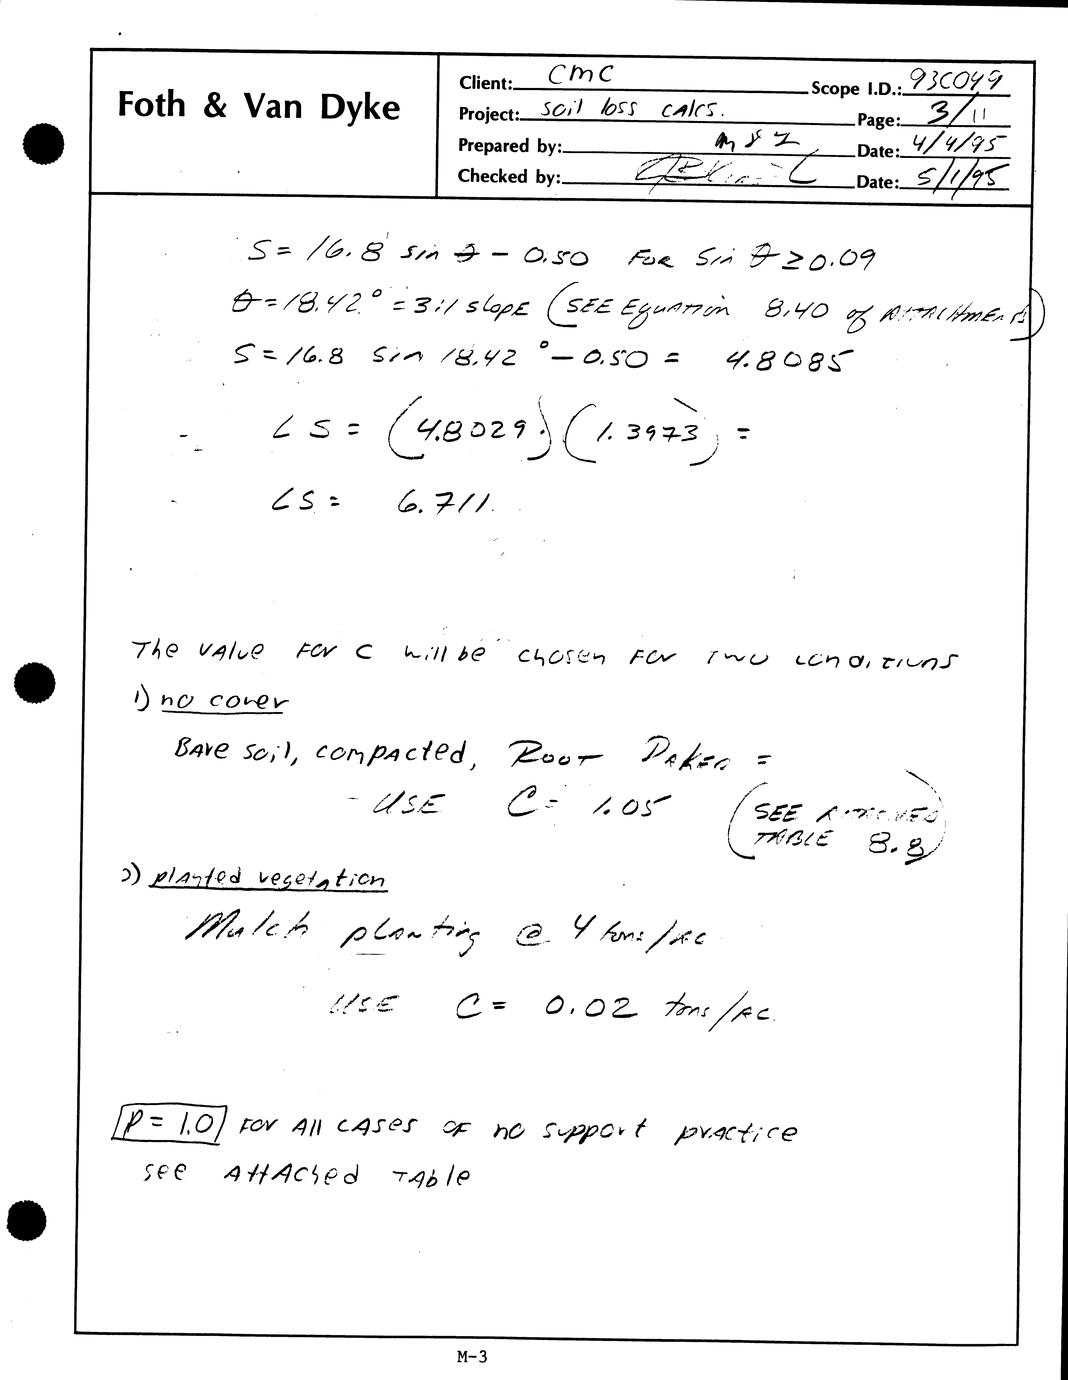 Foth & Van Dyke
Client: CMC Scope I.D.: 93C049
Project: soil loss calcs. Page: 3/11
Prepared by: Date: 4/4/95
Checked by: Date: 5/1/95
S = 16.8 sin θ - 0.50 FOR Sin θ ≥ 0.09
θ = 18.42° = 3:1 slope (SEE Equation 8.40 of ATTACHMENTS)
S = 16.8 sin 18.42° - 0.50 = 4.8085
LS = (4.8029)(1.3973) =
LS = 6.711
The value for C will be chosen for two conditions
1) no cover
Bare soil, compacted, Root Raked =
- USE C = 1.05 (SEE ATTACHED
TABLE 8.8)
2) planted vegetation
Mulch planting @ 4 tons/AC
USE C = 0.02 tons/AC.
P = 1.0 for all cases of no support practice
see attached table
M-3